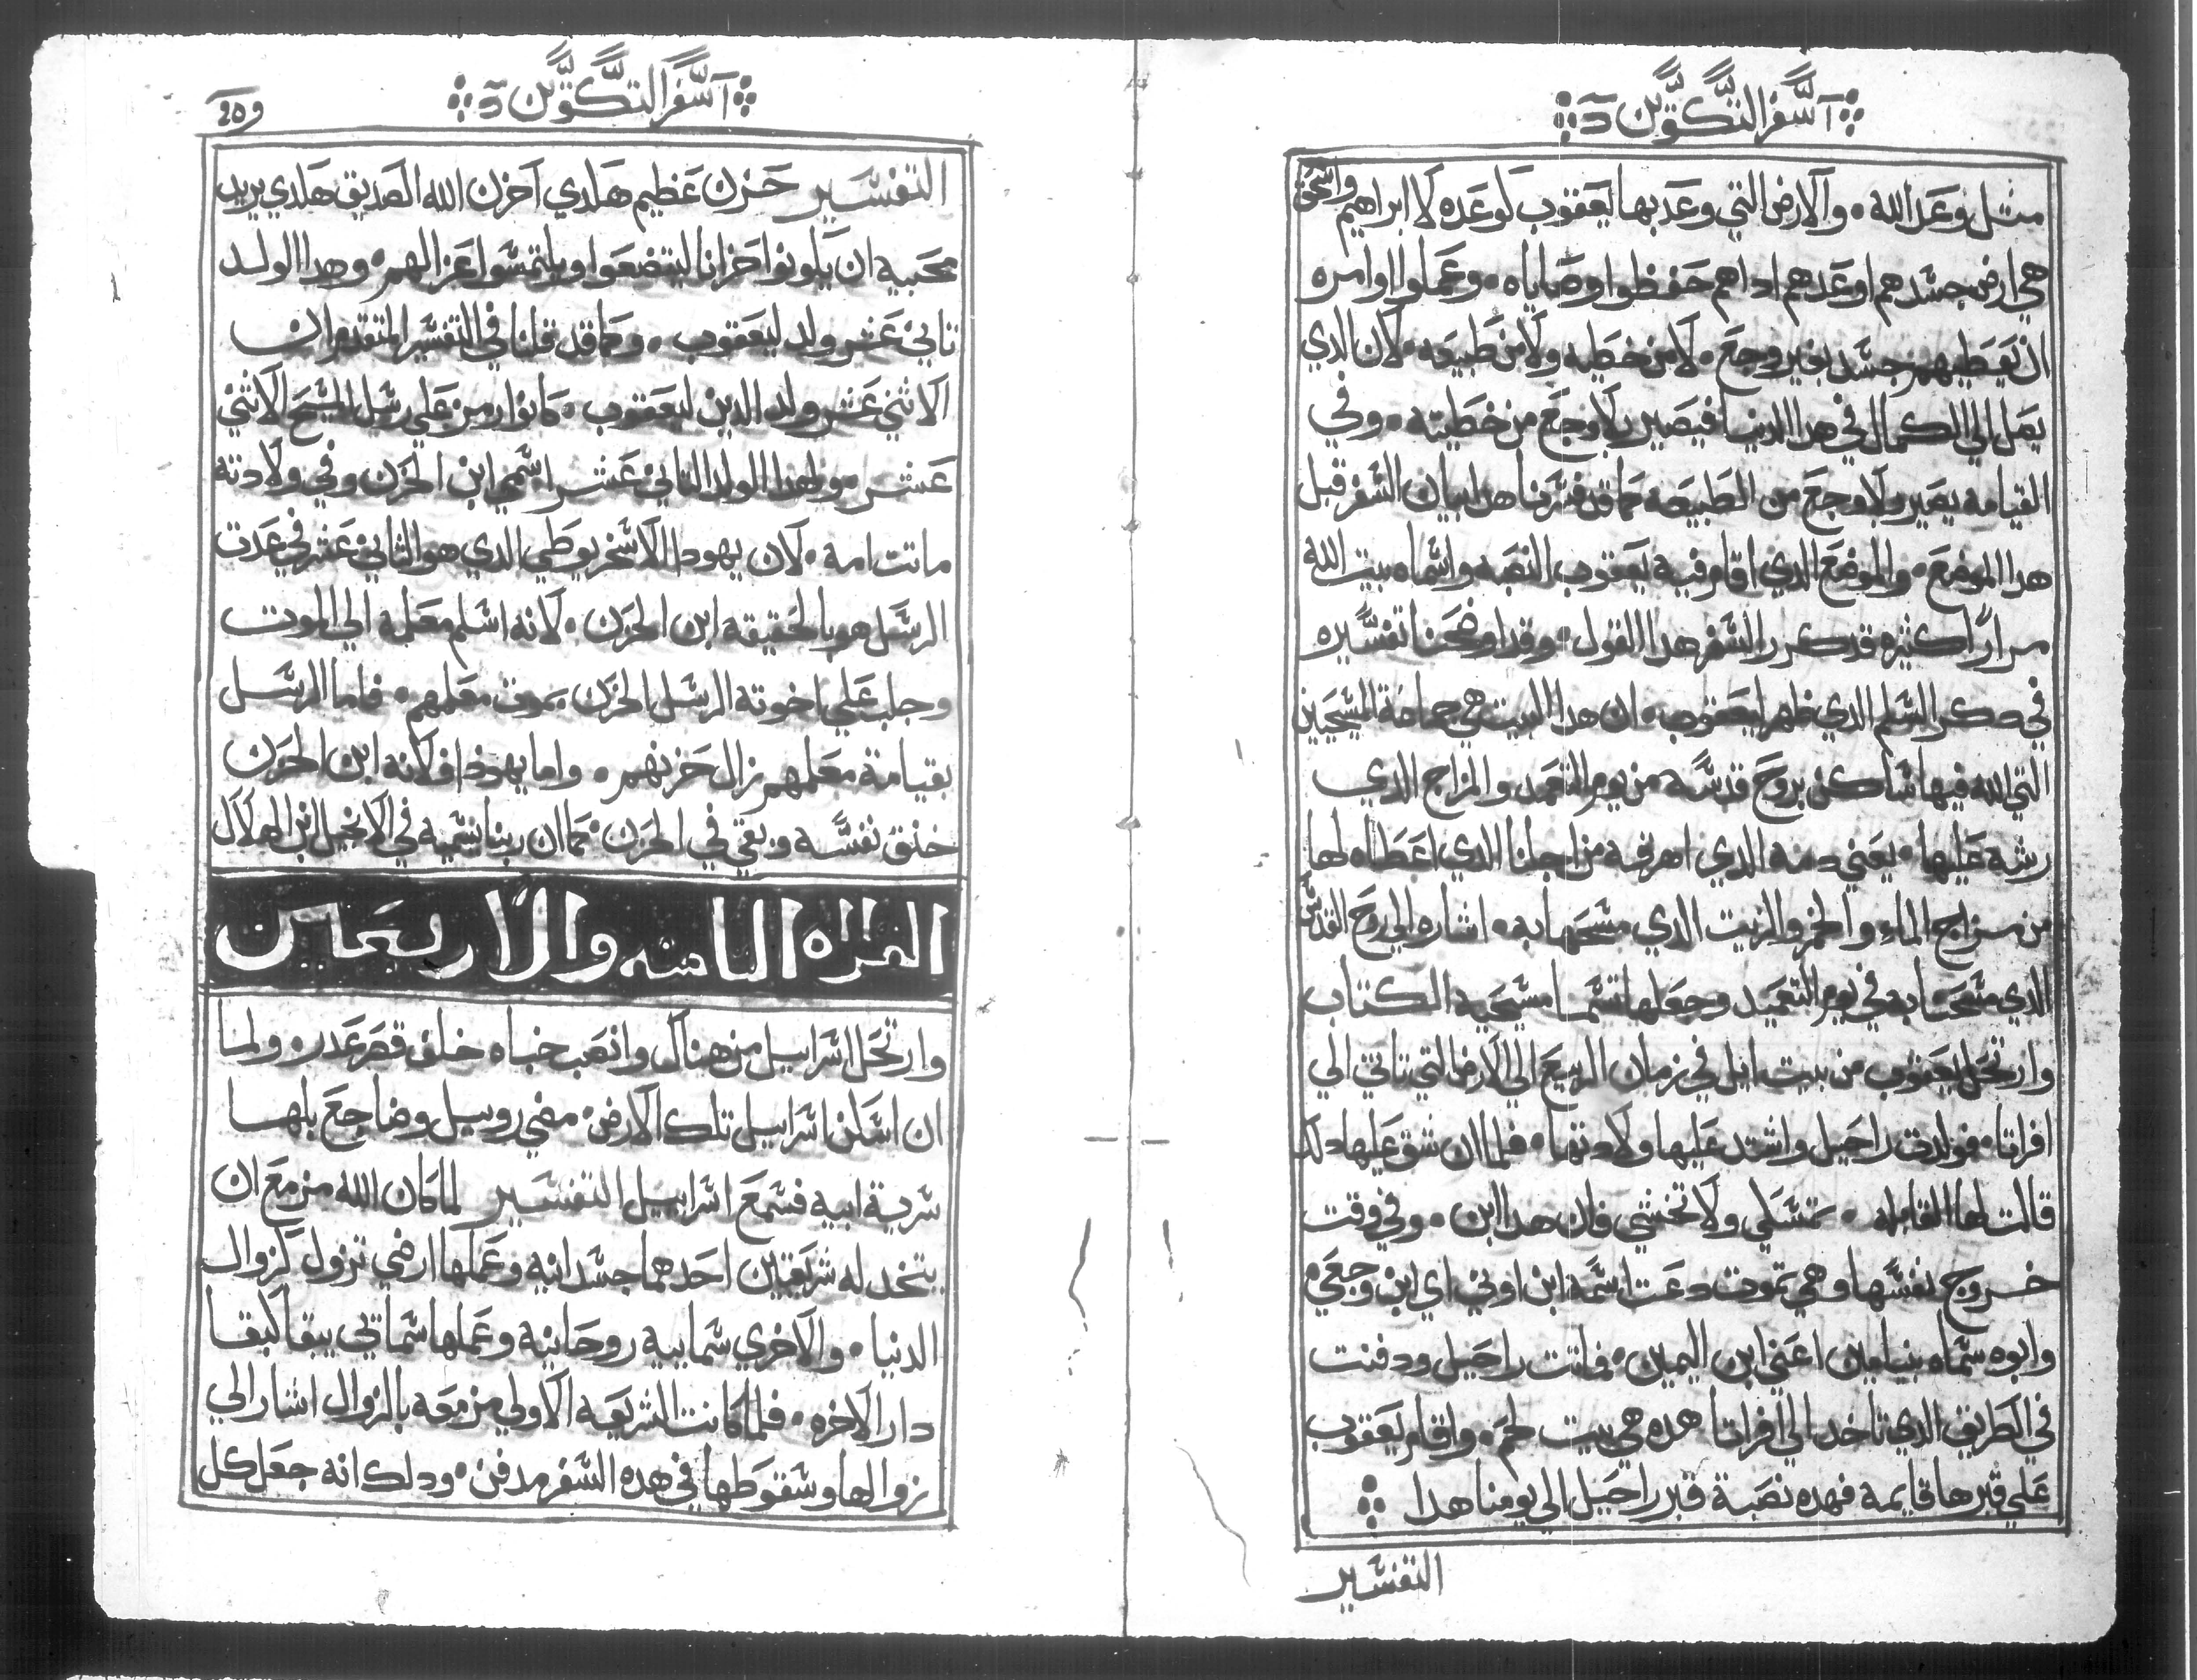 سفر التكوين
مثل وعد الله • والارض التي وعد بها ليعقوب لوعده لابراهيم واسحق
هي ارض جسدهم اوعدهم اداهم حفظوا وصاياه • وعملوا اوامره
ان يعطيهم جسد بغير وجع • لا من خطيه ولا من طبيعه • لان الدي
يصل الي الكمال في هدا الدنيا فيصير بلا وجع من خطيته • وفي
القيامه يصير بلا وجع من الطبيعه كما قد فسرنا هدا بيان السفر قبل
هدا الموضع • والموضع الدي اقام فيه يعقوب النصبه واسماه بيت الله
مرارًا كتيره قد كرر السفر هدا القول • وقد اوضحنا تفسيره
في دكر السلم الدي ظهر ليعقوب • ان هدا البيت هي جماعة المسيحيين
التي الله فيها ساكن بروح قدسه من يوم التعمد والمزاج الدي
رشه عليها • يعني دمه الدي اهرقه من اجلنا الدي اعطاه لها
من مزاج الماء والخمر والزيت الدي مسحها به • اشاره الي روح القدس
الدي مسحنا به في يوم التعميد وجعلها تسما مسيحيه الكتاب
وارتحل يعقوب من بيت ايل في زمان الربيع الي الارض التي تاتي الي
افراتا • فولدت راحيل واشتد عليها ولادتها • فلما ان شق عليها دلك
قالت لها القابله • تمسكي ولا تخشي فان هدا ابن • وفي وقت
خروج نفسها وهي تموت دعت اسمه ابن اوني اي ابن وجعي •
وابوه سماه بنيامين اعني ابن اليمين • فماتت راحيل ودفنت
في الطريق الدي تاخد الي افراتا هده هي بيت لحم • واقام يعقوب
علي قبرها قايمة فهده نصبة قبر راحيل الي يومنا هدا
التفسير
سفر التكوين
التفسير حزن عظيم هكدي احزن الله الصديق هكدي يريد
محبيه ان يكونوا حزانا ليتضعوا ويلتمسوا عزا لهم • وهدا الولد
تاني عشر ولد ليعقوب • وكما قد قلنا في التفسير المتقدم ان
الاثني عشر ولد الدين ليعقوب • كانوا رمز علي رسل المسيح الاثني
عشر • ولهدا الولد التاني عشر اسمي ابن الحزن وفي ولادته
ماتت امه • لان يهودا الاسخريوطي الدي هو التاني عشر في عدت
الرسل هو بالحقيقه ابن الحزن • لانه اسلم معلمه الي الموت
وجلب علي اخوته الرسل الحزن بموت معلمهم • فاما الرسل
بقيامة معلمهم زال حزنهم • واما يهودا فلانه ابن الحزن
خنق نفسه وبقي في الحزن • كما ان ربنا يسميه في الانجيل ابن الهلاك
القراه التامنه والاربعين
وارتحل اسراييل من هناك وانصب خباه خلف قصر عدره ولما
ان اسكن اسراييل تلك الارض • مضي روبيل وضاجع بلها
سرية ابيه فسمع اسراييل التفسير لما كان الله مزمع ان
يتخد له شريعتين احدهما جسدانيه وعملها ارضي تزول كزوال
الدنيا • والاخري سماييه روحانيه وعملها سماتي يبقا كبقا
دار الاخره • فلما كانت الشريعه الاولي مزمعه بالزوال اشار الي
زوالها وسقوطها في هده السفر مدفن • ودلك انه جعل كل